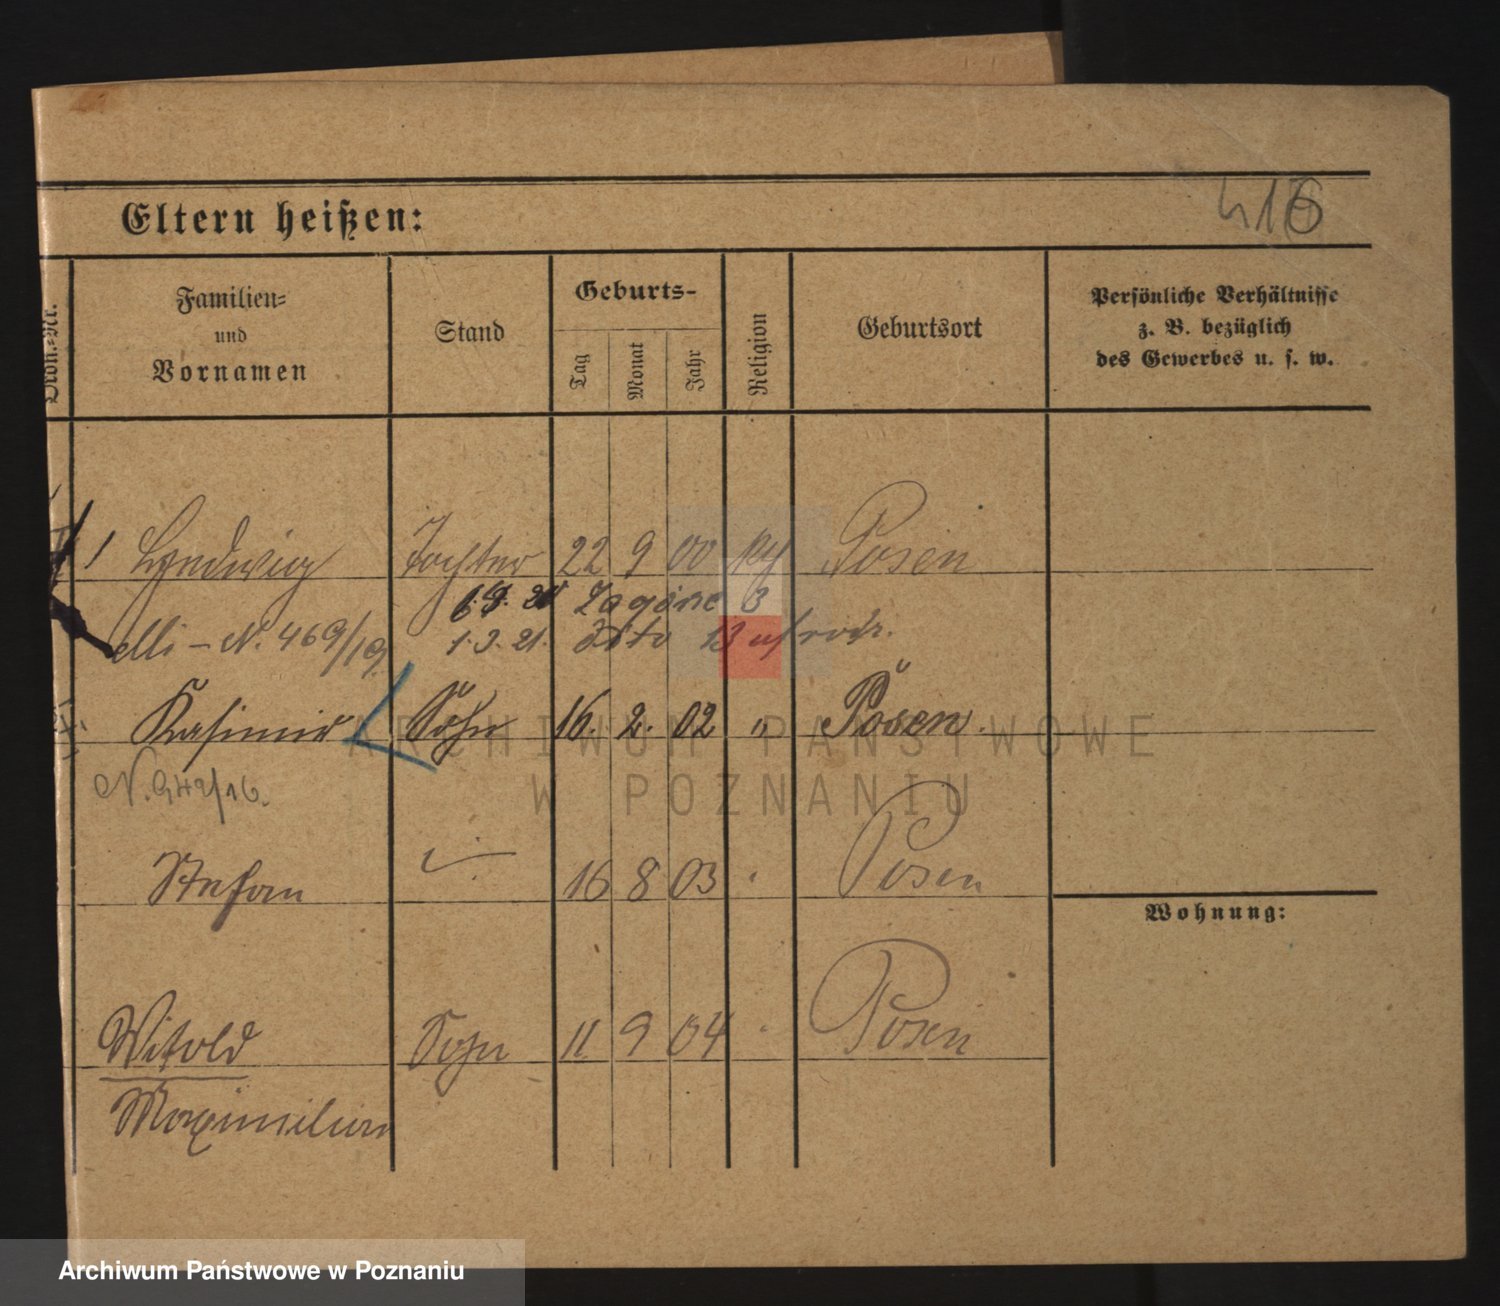 416
Eltern heißen:
Ordn.-Nr.
Familien-
und
Vornamen
Stand
Geburts-
Tag
Monat
Jahr
Religion
Geburtsort
Persönliche Verhältnisse
z. B. bezüglich
des Gewerbes u. s. w.
1 Tochter 22 9 00 Posen
6.9. 20
N. 469/19 1.3.21. dito 13
Kasimir Sohn 16. 2. 02 " Posen.
N. 942/16.
Stefan 16 8 03 " Posen
Wohnung:
Witold Sohn 11 9 04 " Posen
Maximilian
ARCHIWUM PAŃSTWOWE
W POZNANIU
Archiwum Państwowe w Poznaniu